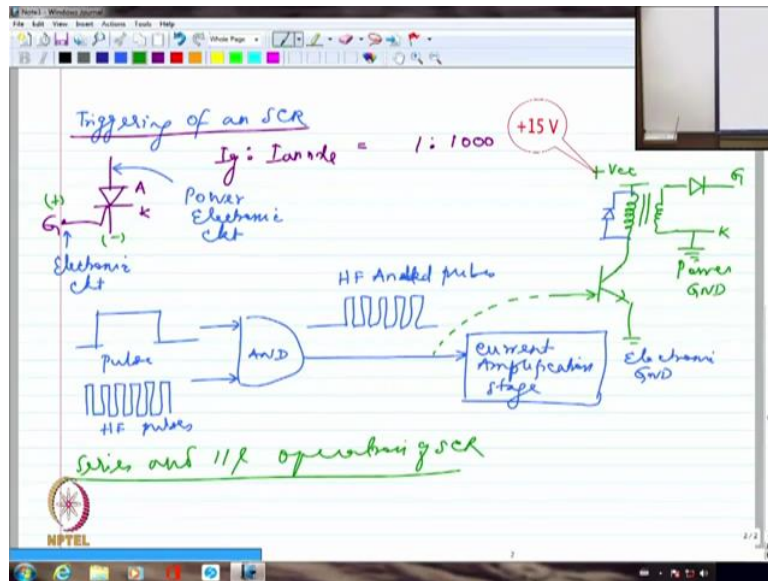 Note1 - Windows Journal
File Edit View Insert Actions Tools Help
Whole Page
Triggering of an SCR
Ig : Ianode = 1 : 1000
+15 V
+Vcc
G
(+)
A
K
G
(-)
Power
Electronic
ckt
Electronic
ckt
K
Power
GND
HF Anded pulses
Pulse
AND
HF pulses
Current
Amplification
stage
Electronic
GND
Series and 11l operation of SCR
NPTEL
2/2
2